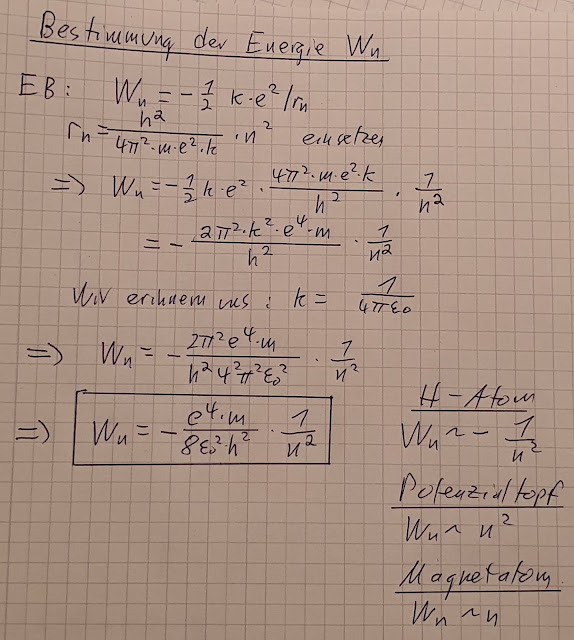 Bestimmung der Energie Wₙ
EB: Wₙ = - 1/2 k·e²/rₙ
rₙ = h²/(4π²·m·e²·k) · n² einsetzen
=> Wₙ = - 1/2 k·e² · (4π²·m·e²·k)/h² · 1/n²
= - (2π²·k²·e⁴·m)/h² · 1/n²
Wir erinnern uns: k = 1/(4πε₀)
=> Wₙ = - (2π²e⁴·m)/(h²4²π²ε₀²) · 1/n²
=> Wₙ = - (e⁴·m)/(8ε₀²·h²) · 1/n²
H-Atom
Wₙ ~ - 1/n²
Potenzialtopf
Wₙ ~ n²
Magnetatom
Wₙ ~ n